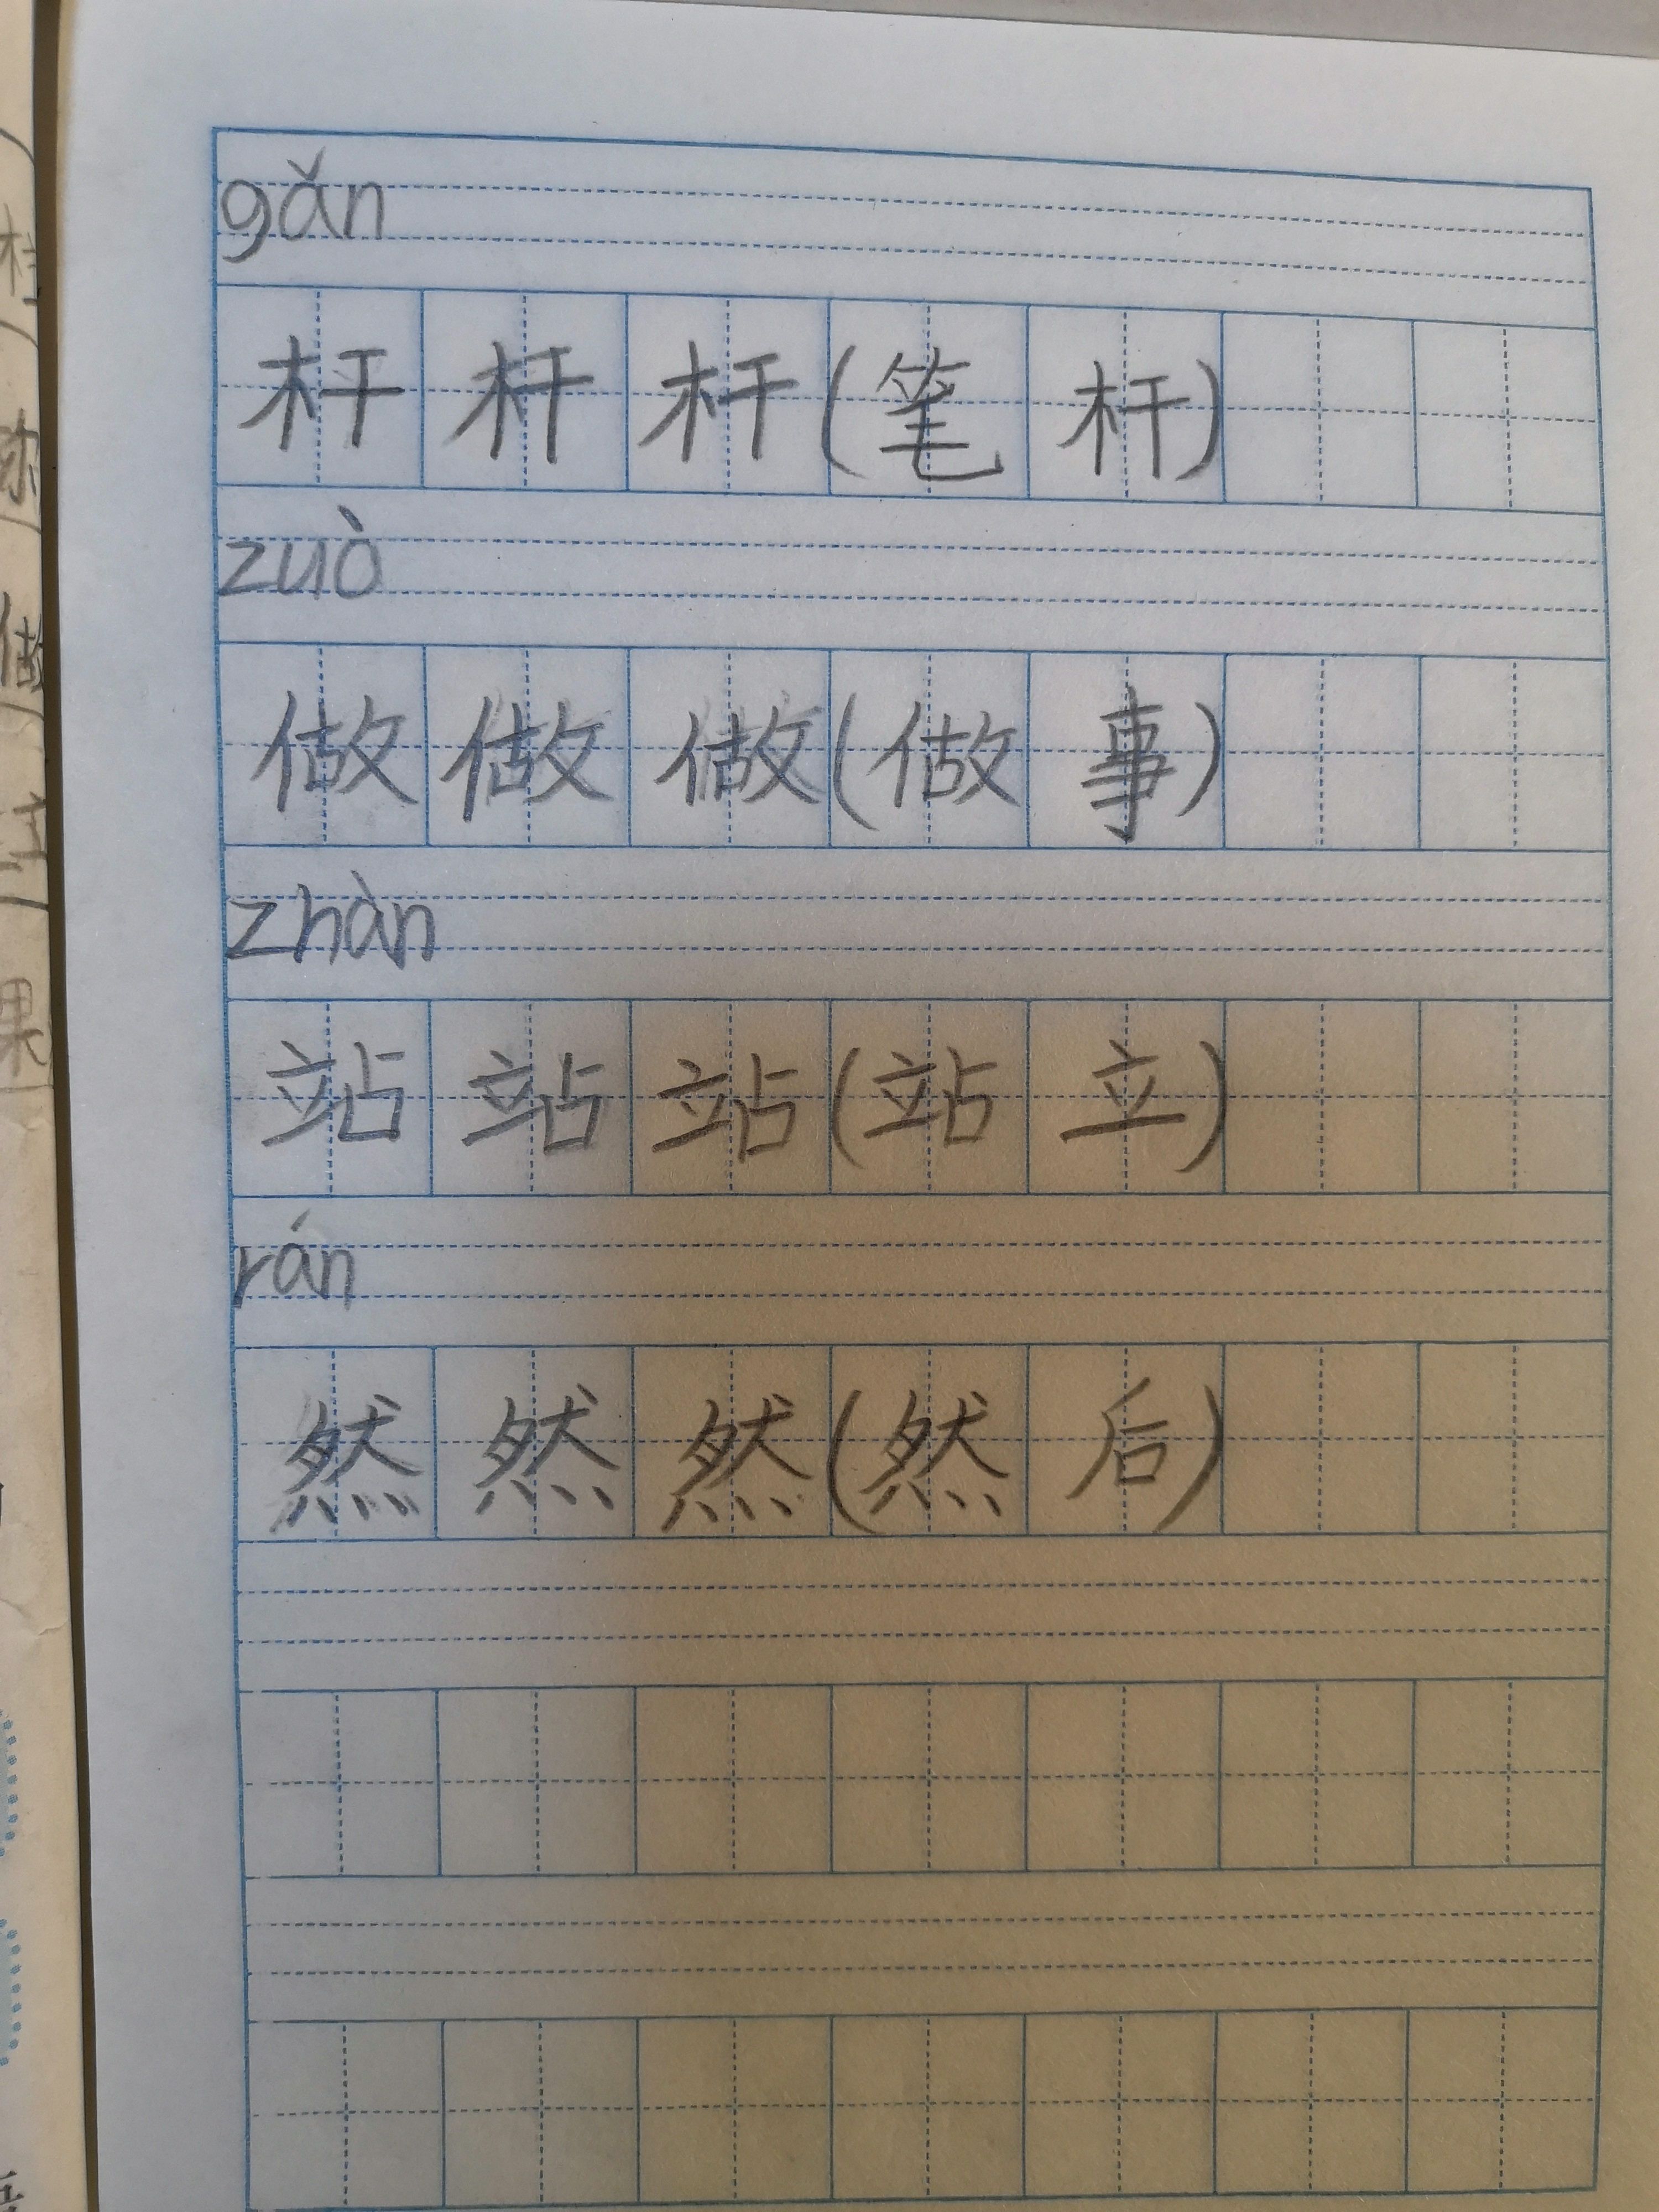 gǎn
杆杆杆(笔杆)
zuò
做做做(做事)
zhàn
站站站(站立)
rán
然然然(然后)